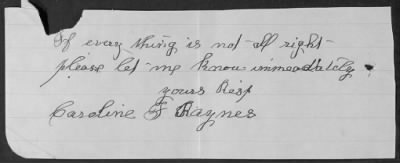 If every thing is not all right
please let me know immediately
yours Resp
Caroline F Haynes